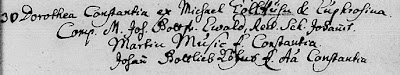 30 Dorothea Constantia ex Michael & Euphrosina
Comp. M. Joh. Gottfr. Ewald, Rect. Sch. Johānit.
Martin Music f. Constantia.
Johañ Gottlieb f. Aā Constantia